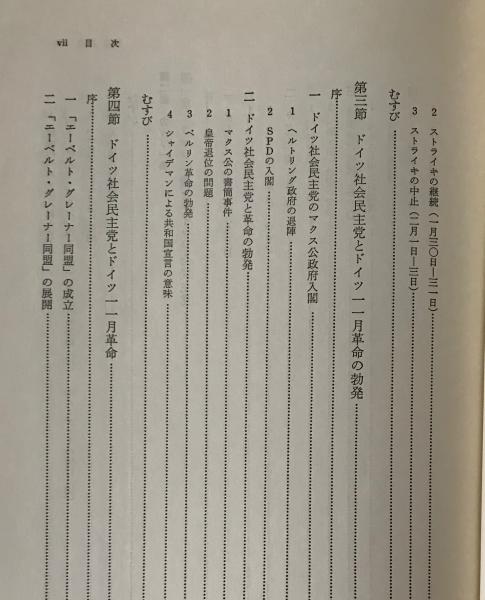 vii 目次
2 ストライキの継続(一月三〇日―三一日)
3 ストライキの中止(二月一日―三日)
むすび
第三節 ドイツ社会民主党とドイツ一一月革命の勃発
序
一 ドイツ社会民主党のマクス公政府入閣
1 ヘルトリング政府の退陣
2 SPDの入閣
二 ドイツ社会民主党と革命の勃発
1 マクス公の書簡事件
2 皇帝退位の問題
3 ベルリン革命の勃発
4 シャイデマンによる共和国宣言の意味
むすび
第四節 ドイツ社会民主党とドイツ一一月革命
序
一 「エーベルト・グレーナー同盟」の成立
二 「エーベルト・グレーナー同盟」の展開